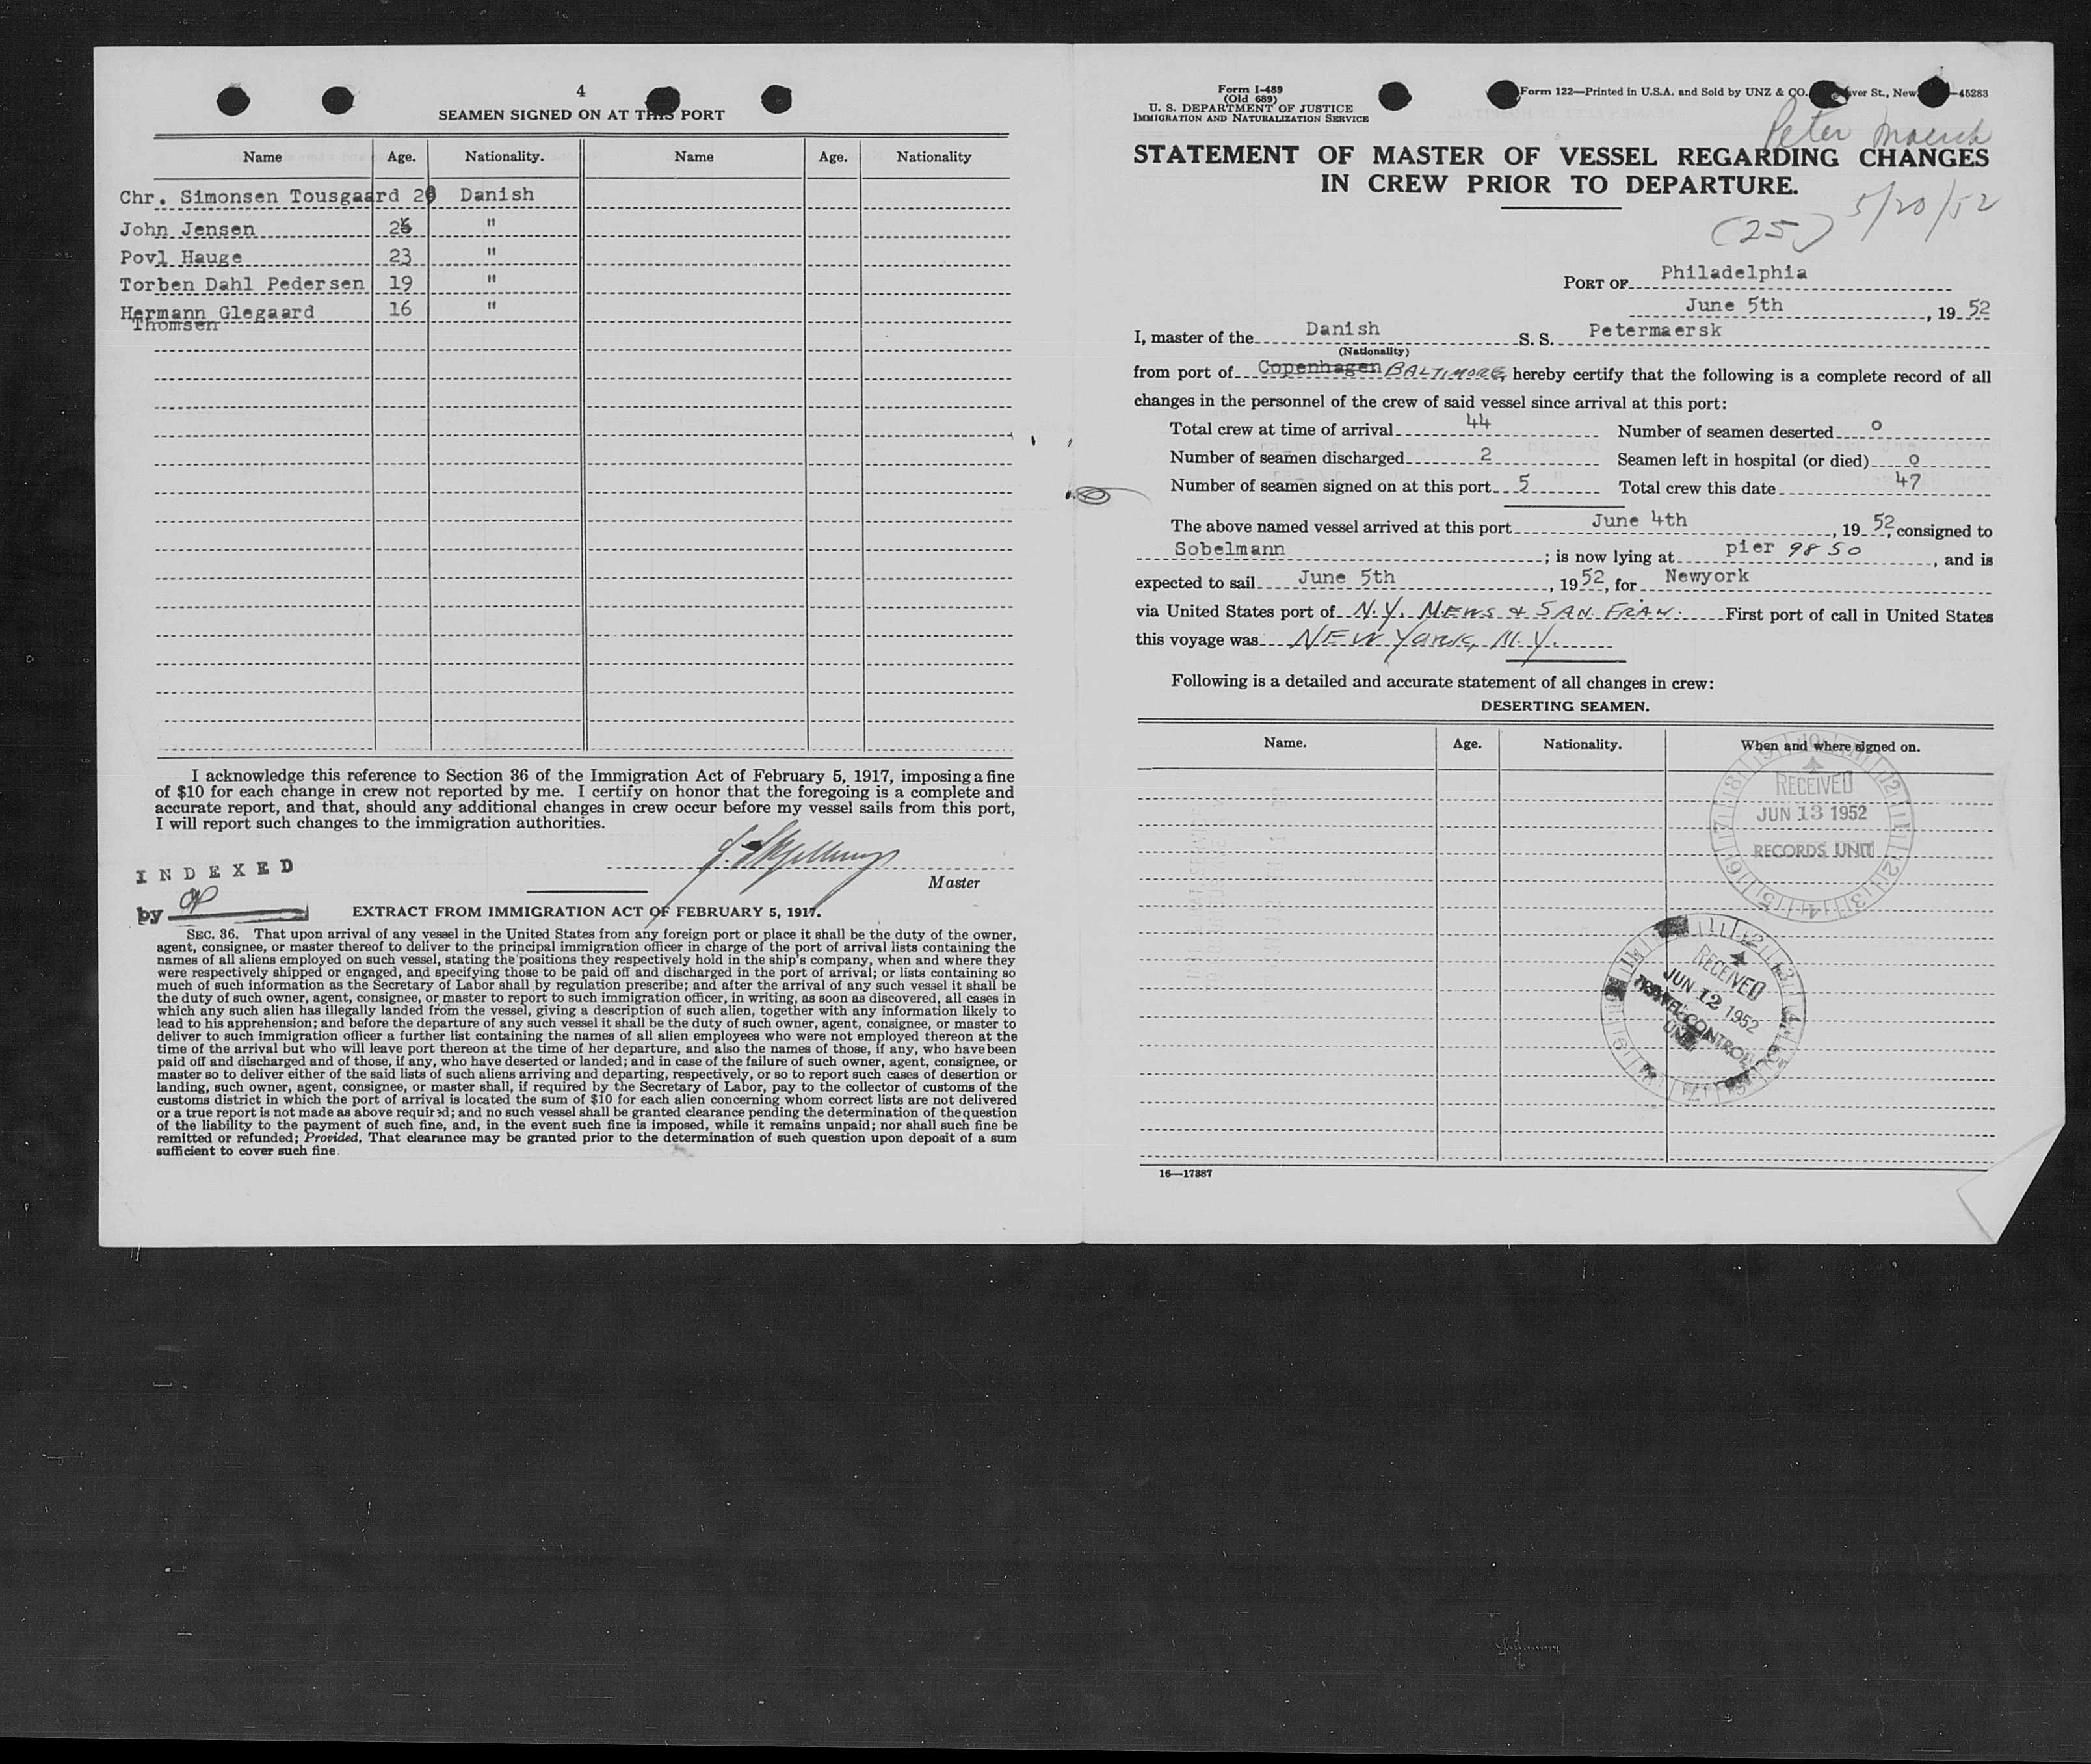 4
SEAMEN SIGNED ON AT THIS PORT
Name Age. Nationality. Name Age. Nationality
Chr. Simonsen Tousgaard Danish
John Jensen "
Povl Hauge 23 "
Torben Dahl Pedersen 19 "
Hermann Glegaard 16 "
Thomsen
I acknowledge this reference to Section 36 of the Immigration Act of February 5, 1917, imposing a fine
of $10 for each change in crew not reported by me. I certify on honor that the foregoing is a complete and
accurate report, and that, should any additional changes in crew occur before my vessel sails from this port,
I will report such changes to the immigration authorities.
Master
INDEXED
by
EXTRACT FROM IMMIGRATION ACT OF FEBRUARY 5, 1917.
SEC. 36. That upon arrival of any vessel in the United States from any foreign port or place it shall be the duty of the owner,
agent, consignee, or master thereof to deliver to the principal immigration officer in charge of the port of arrival lists containing the
names of all aliens employed on such vessel, stating the positions they respectively hold in the ship's company, when and where they
were respectively shipped or engaged, and specifying those to be paid off and discharged in the port of arrival; or lists containing so
much of such information as the Secretary of Labor shall by regulation prescribe; and after the arrival of any such vessel it shall be
the duty of such owner, agent, consignee, or master to report to such immigration officer, in writing, as soon as discovered, all cases in
which any such alien has illegally landed from the vessel, giving a description of such alien, together with any information likely to
lead to his apprehension; and before the departure of any such vessel it shall be the duty of such owner, agent, consignee, or master to
deliver to such immigration officer a further list containing the names of all alien employees who were not employed thereon at the
time of the arrival but who will leave port thereon at the time of her departure, and also the names of those, if any, who have been
paid off and discharged and of those, if any, who have deserted or landed; and in case of the failure of such owner, agent, consignee, or
master so to deliver either of the said lists of such aliens arriving and departing, respectively, or so to report such cases of desertion or
landing, such owner, agent, consignee, or master shall, if required by the Secretary of Labor, pay to the collector of customs of the
customs district in which the port of arrival is located the sum of $10 for each alien concerning whom correct lists are not delivered
or a true report is not made as above required; and no such vessel shall be granted clearance pending the determination of the question
of the liability to the payment of such fine, and, in the event such fine is imposed, while it remains unpaid; nor shall such fine be
remitted or refunded; Provided, That clearance may be granted prior to the determination of such question upon deposit of a sum
sufficient to cover such fine
Form I-489
(Old 689)
U. S. DEPARTMENT OF JUSTICE
IMMIGRATION AND NATURALIZATION SERVICE
Form 122—Printed in U.S.A. and Sold by UNZ & CO. St., New —45283
Peter Maersk
STATEMENT OF MASTER OF VESSEL REGARDING CHANGES
IN CREW PRIOR TO DEPARTURE.
(25) 5/20/52
PORT OF Philadelphia
June 5th, 19 52
I, master of the Danish S. S. Petermaersk
(Nationality)
from port of Copenhagen BALTIMORE, hereby certify that the following is a complete record of all
changes in the personnel of the crew of said vessel since arrival at this port:
Total crew at time of arrival 44 Number of seamen deserted 0
Number of seamen discharged 2 Seamen left in hospital (or died) 0
Number of seamen signed on at this port 5 Total crew this date 47
The above named vessel arrived at this port June 4th, 19 52, consigned to
Sobelmann; is now lying at pier 98 SO, and is
expected to sail June 5th, 19 52, for Newyork
via United States port of N.Y. NEWS & SAN. FRAN. First port of call in United States
this voyage was NEW YORK, N.Y.
Following is a detailed and accurate statement of all changes in crew:
DESERTING SEAMEN.
Name. Age. Nationality. When and where signed on.
RECEIVED
JUN 13 1952
RECORDS UNIT
RECEIVED
JUN 12 1952
TRAVEL CONTROL
UNIT
16—17387